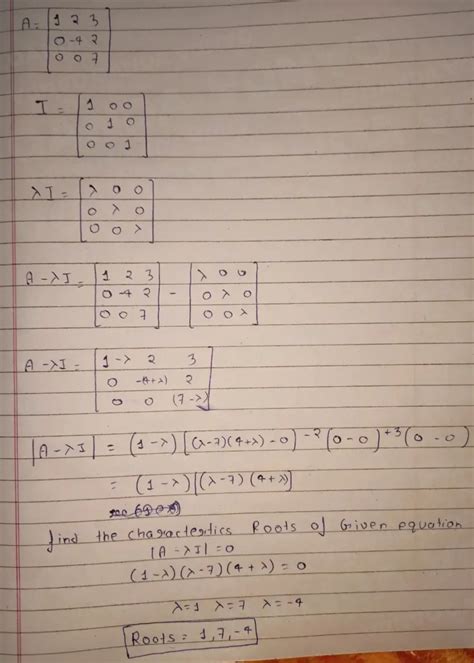 A = [1 2 3
0 -4 2
0 0 7]
I = [1 0 0
0 1 0
0 0 1]
λI = [λ 0 0
0 λ 0
0 0 λ]
A - λI = [1 2 3
0 -4 2
0 0 7] - [λ 0 0
0 λ 0
0 0 λ]
A - λI = [1-λ 2 3
0 -(4+λ) 2
0 0 (7-λ)]
|A - λI| = (1-λ)[(λ-7)(4+λ) - 0] -2(0-0) +3(0-0)
= (1-λ)[(λ-7)(4+λ)]
find the characterstics Roots of Given equation
|A - λI| = 0
(1-λ)(λ-7)(4+λ) = 0
λ=1 λ=7 λ=-4
Roots = 1, 7, -4